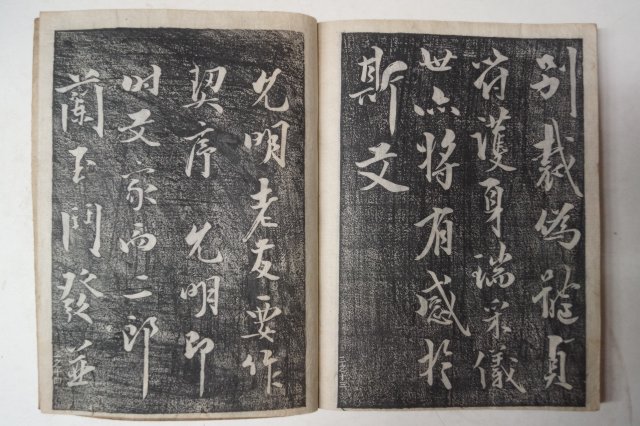 別裁偽體貞
護身瑞采儀
世亦將有感於
斯文
允明老友要作
契序 允明即
時文家二郎
蘭玉鬥發並